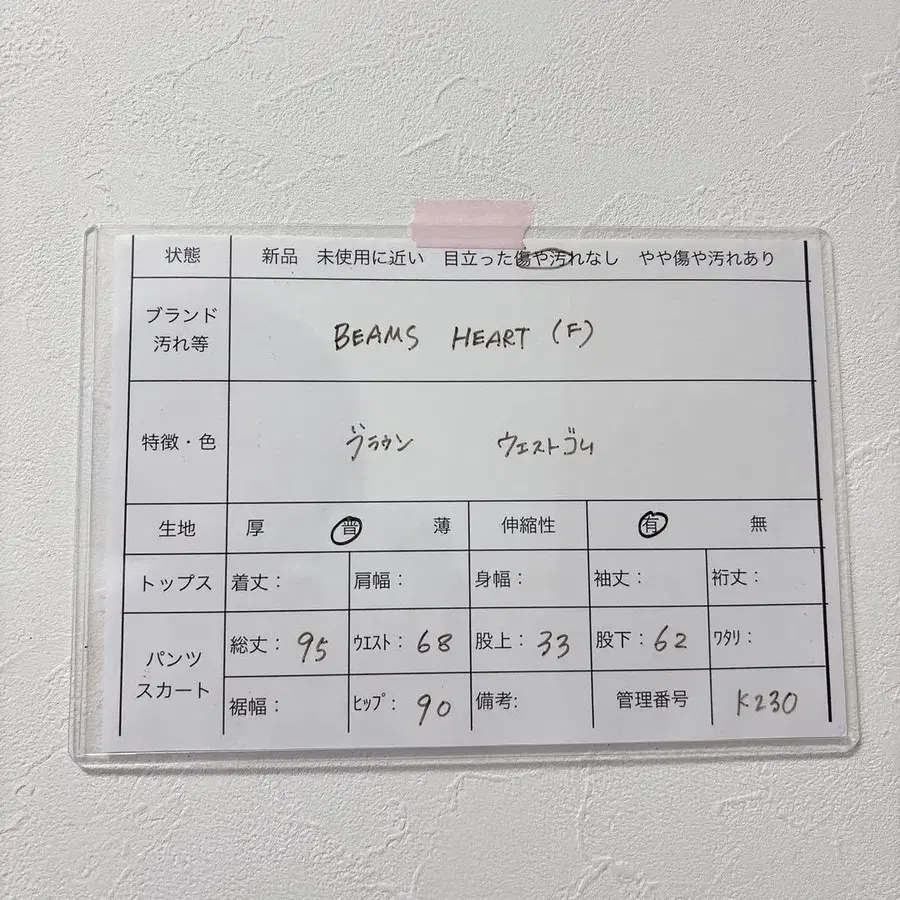 状態 新品 未使用に近い 目立った傷や汚れなし やや傷や汚れあり
ブランド
汚れ等
BEAMS HEART (F)
特徴・色 ブラウン ウエストゴム
生地 厚 普 薄 伸縮性 有 無
トップス 着丈: 肩幅: 身幅: 袖丈: 裄丈:
パンツ
スカート
総丈: 95 ウエスト: 68 股上: 33 股下: 62 ワタリ:
裾幅: ヒップ: 90 備考: 管理番号 K230